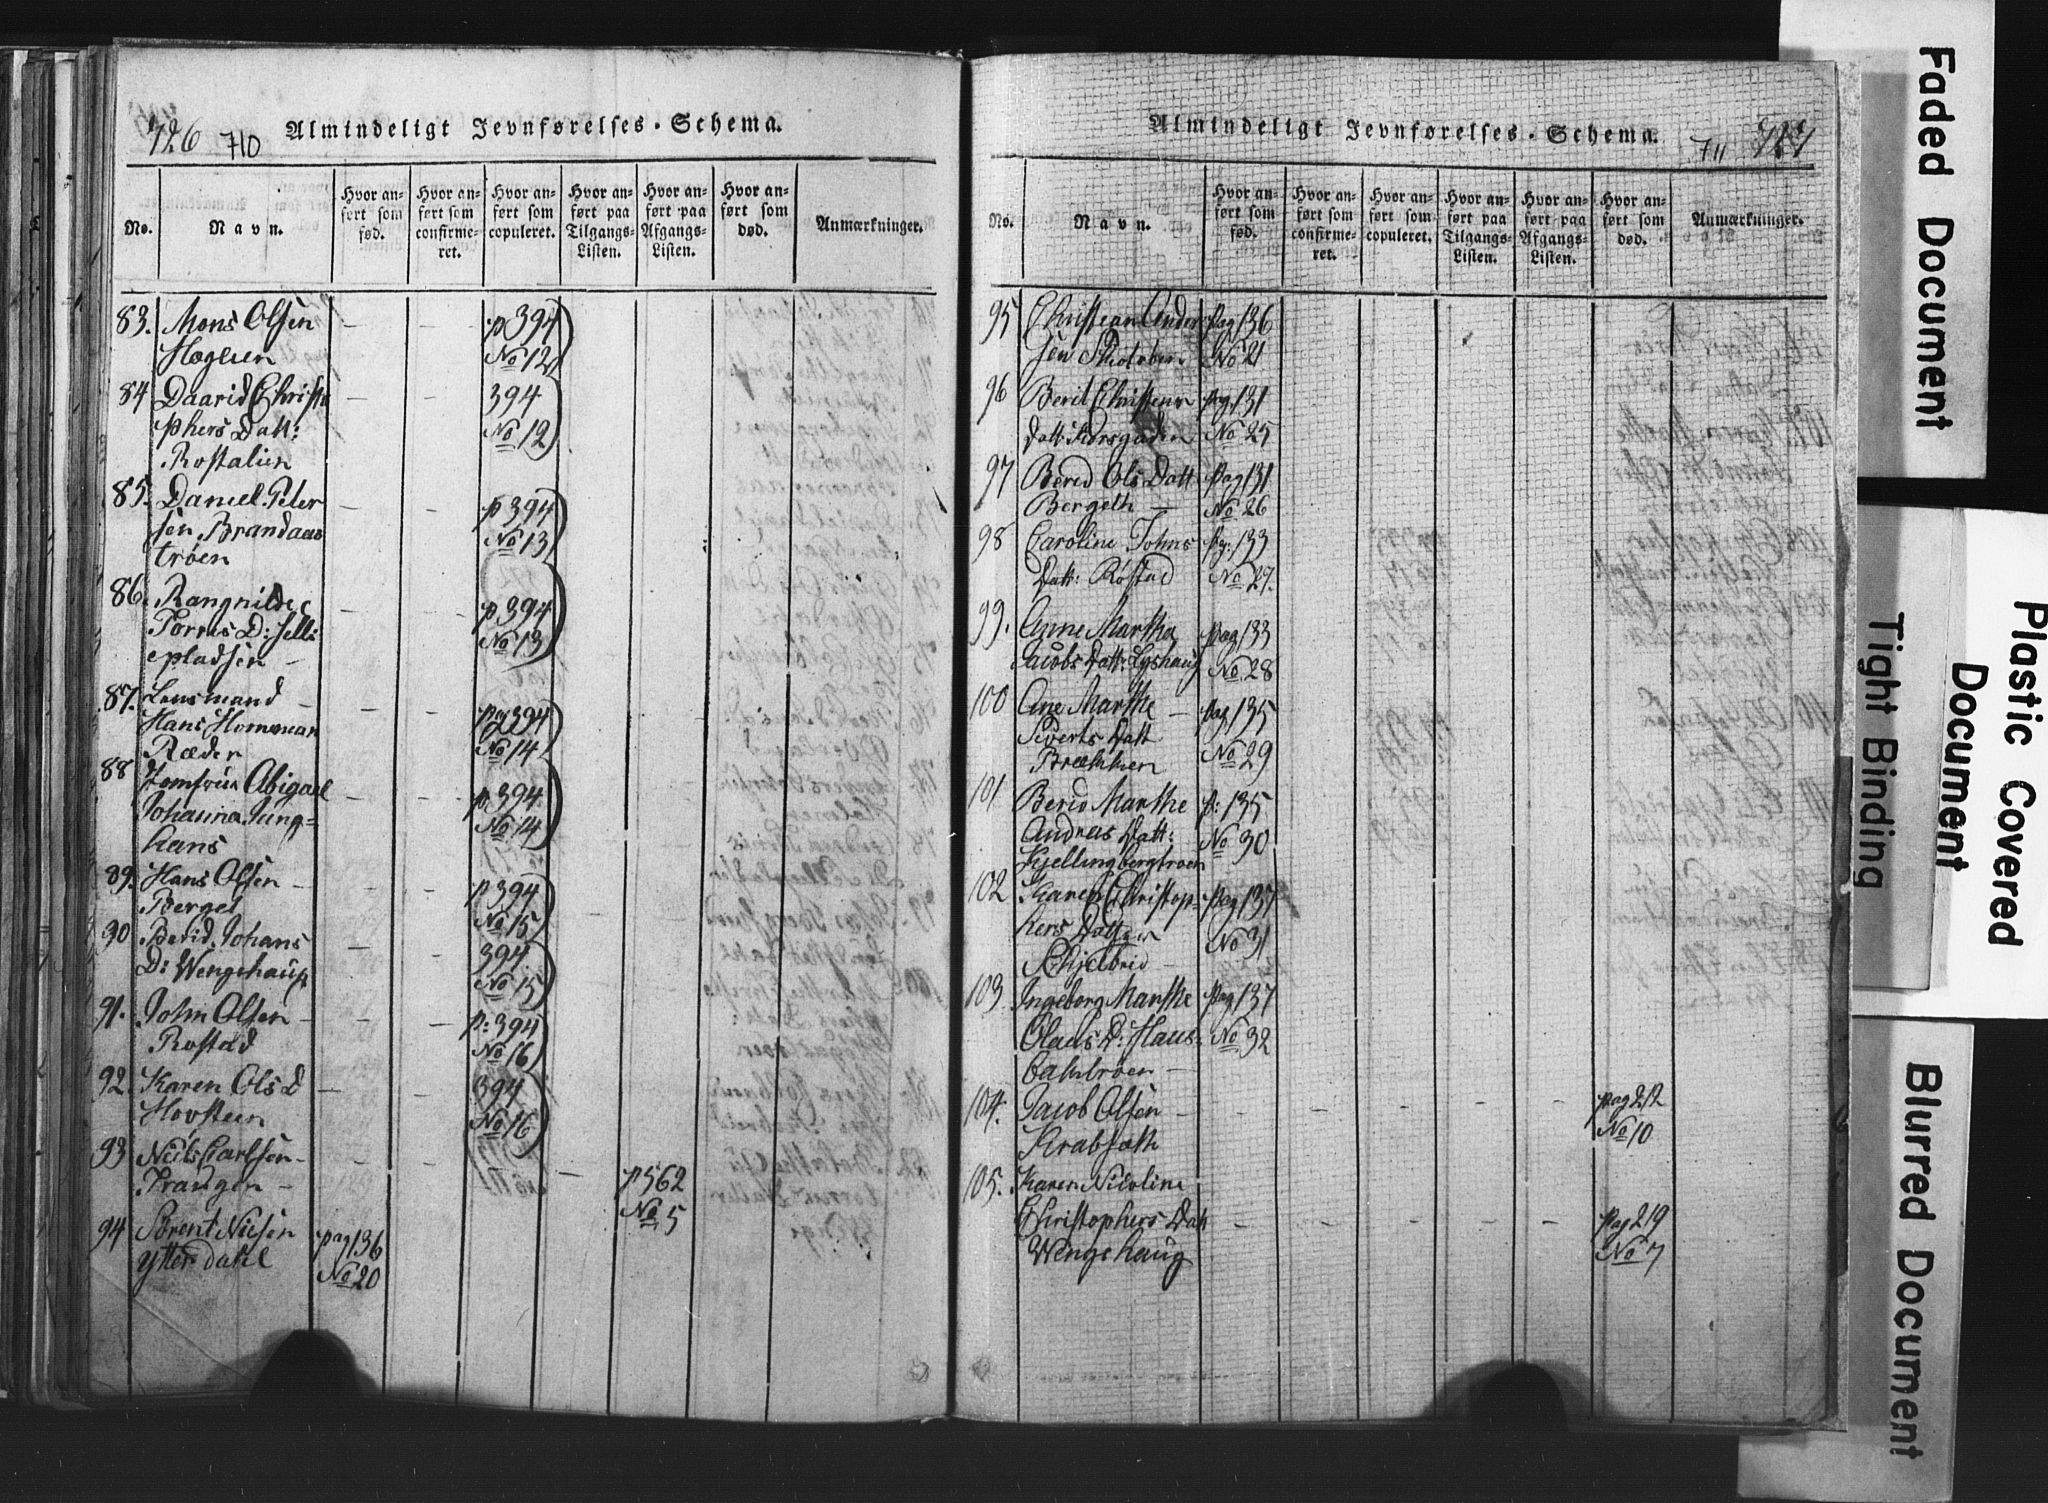 726 710 Almindeligt Jevnførelses-Schema.
No. Navn. Hvor anført som fød. Hvor anført som confirmeret. Hvor anført som copuleret. Hvor anført paa Tilgangs-Listen. Hvor anført paa Afgangs-Listen. Hvor anført som død. Anmærkninger.
83. Mons Olsen — — p 394
Hoglien No 12
84 Daarid Christo — — 394
phers Datt: No 12
Rostalien
85. Daniel Peter — — p 394
sen Brandaas No 13
trøen
86. Rangnilde — — p 394
Torres D: Selli No 13
epladsen —
87. Lensmand — — pag 394
Hans Hornman No 14
Ræder
88 Jomfrue Abigael — — p. 394
Johanna Jung= No 14
hans
89. Hans Olsen — — p 394
Berget No 15
90 Berid Johans — — 394
D: Wengshaug No 15
91. John Olsen — — p: 394
Rostad No 16
92. Karen Ols D — — 394
Hovsteen No 16
93 Neils Carlsen — — — — p 562
Trangen — No 5
94 Sørent Nielsen pag 136
Ytterdahl No 20
Almindeligt Jevnførelses-Schema. 711 727
No. Navn. Hvor anført som fød. Hvor anført som confirmeret. Hvor anført som copuleret. Hvor anført paa Tilgangs-Listen. Hvor anført paa Afgangs-Listen. Hvor anført som død. Anmærkninger.
95 Christean Ander Pag 136
sen No 21
96 Berit Christens Pag. 131
Datt: Korsgaden No 25
97 Bered Ols Datt Pag 131
Bergeth — No 26
98 Caroline Johns Pg: 133
Datt: Røstad No 27.
99. Anne Martha pag 133
Jacobs Datt: Lyshaug No 28
100 Ane Marthe — pag 135
Siverts Datt No 29
Brækken
101 Berid Marthe P: 135
Andreas Datt: No 30
Kjellingbergtroen
102 Karen Christop= Pag 137
hers Datter No 31
Schjelbrid —
103 Ingeborg Marthe Pag 137
Olaus D: Haus= No 32
bakktrøen —
104. Jacob Olsen — — — — — — pag 212
Krabsæth No 10
105. Karen Nicoline
Christophers Datt — — — — — Pag 219
Wengshaug No 7
Faded Document
Tight Binding
Plastic Covered
Document
Blurred Document